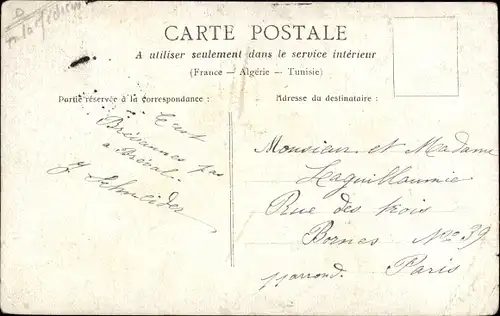 CARTE POSTALE
A utiliser seulement dans le service intérieur
(France — Algérie — Tunisie)
Partie réservée à la correspondance :
Adresse du destinataire :
C'est
Brévannes pas
a Bréval
J. Schneider
Monsieur et Madame
Laguillaumie
Rue des trois
Bornes No 39
Paris